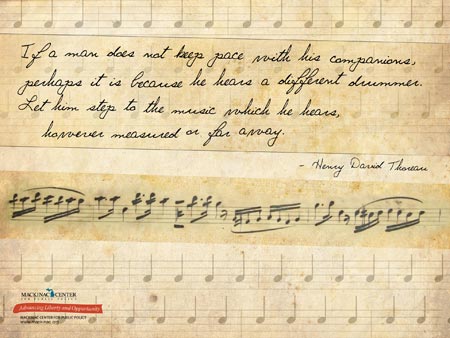 If a man does not keep pace with his companions,
perhaps it is because he hears a different drummer.
Let him step to the music which he hears,
however measured or far away.
- Henry David Thoreau
MACKINAC CENTER
FOR PUBLIC POLICY
Advancing Liberty and Opportunity
MACKINAC CENTER FOR PUBLIC POLICY